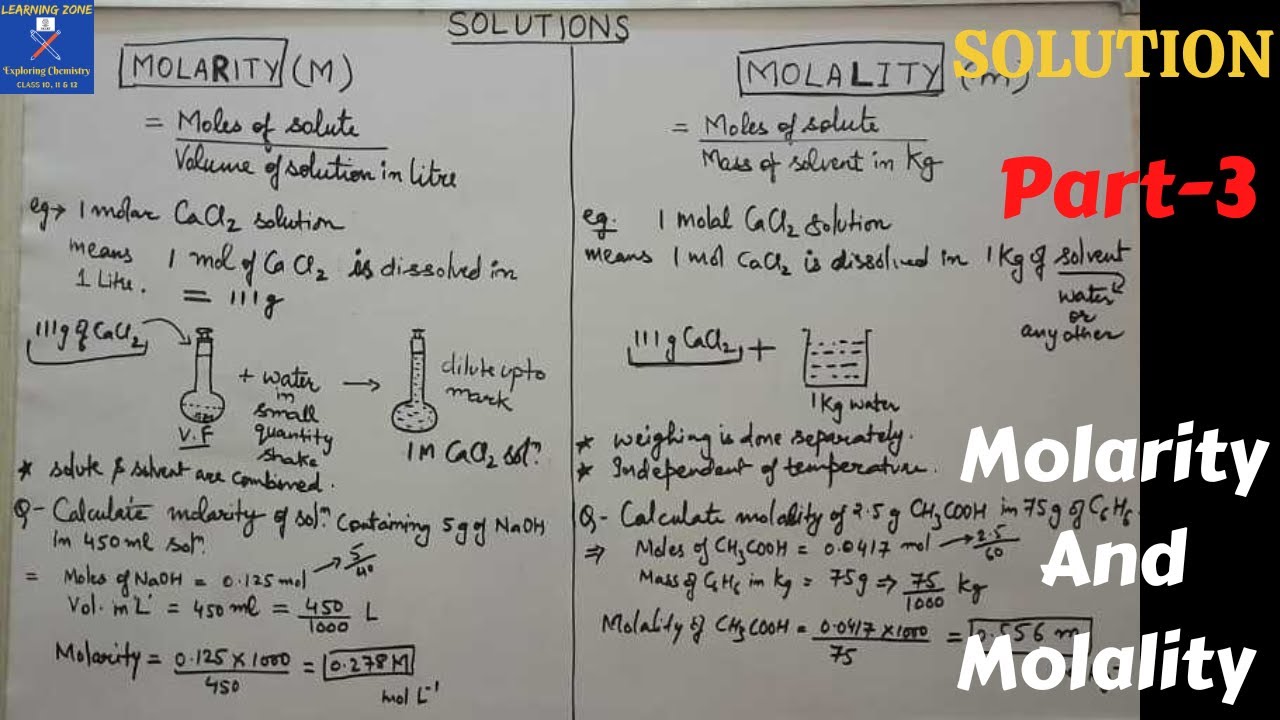 LEARNING ZONE
Exploring Chemistry
CLASS 10, 11 & 12
SOLUTIONS
MOLARITY (M)
= Moles of solute
Volume of solution in litre
eg → 1 molar CaCl2 solution
means 1 mol of CaCl2 is dissolved in
1 Litre. = 111g
111g of CaCl2
V.F
+ water
in
small
quantity
shake
→
dilute upto
mark
1M CaCl2 solⁿ.
* solute & solvent are combined.
Q- Calculate molarity of solⁿ. containing 5g of NaOH
in 450ml solⁿ.
= Moles of NaOH = 0.125 mol → 5/40
Vol. in 'L' = 450 ml = 450/1000 L
Molarity = 0.125 × 1000/450 = 0.278 M
mol L⁻¹
MOLALITY (m)
= Moles of solute
Mass of solvent in Kg
eg. 1 molal CaCl2 solution
means 1 mol CaCl2 is dissolved in 1 Kg of solvent
water
or
any other
111g CaCl2 +
1Kg water
* weighing is done separately.
* Independent of temperature.
Q- Calculate molality of 2.5g CH3COOH in 75g of C6H6.
⇒ Moles of CH3COOH = 0.0417 mol → 2.5/60
Mass of C6H6 in kg = 75g ⇒ 75/1000 Kg
Molality of CH3COOH = 0.0417 × 1000/75 = 0.556 m
SOLUTION
Part-3
Molarity
And
Molality